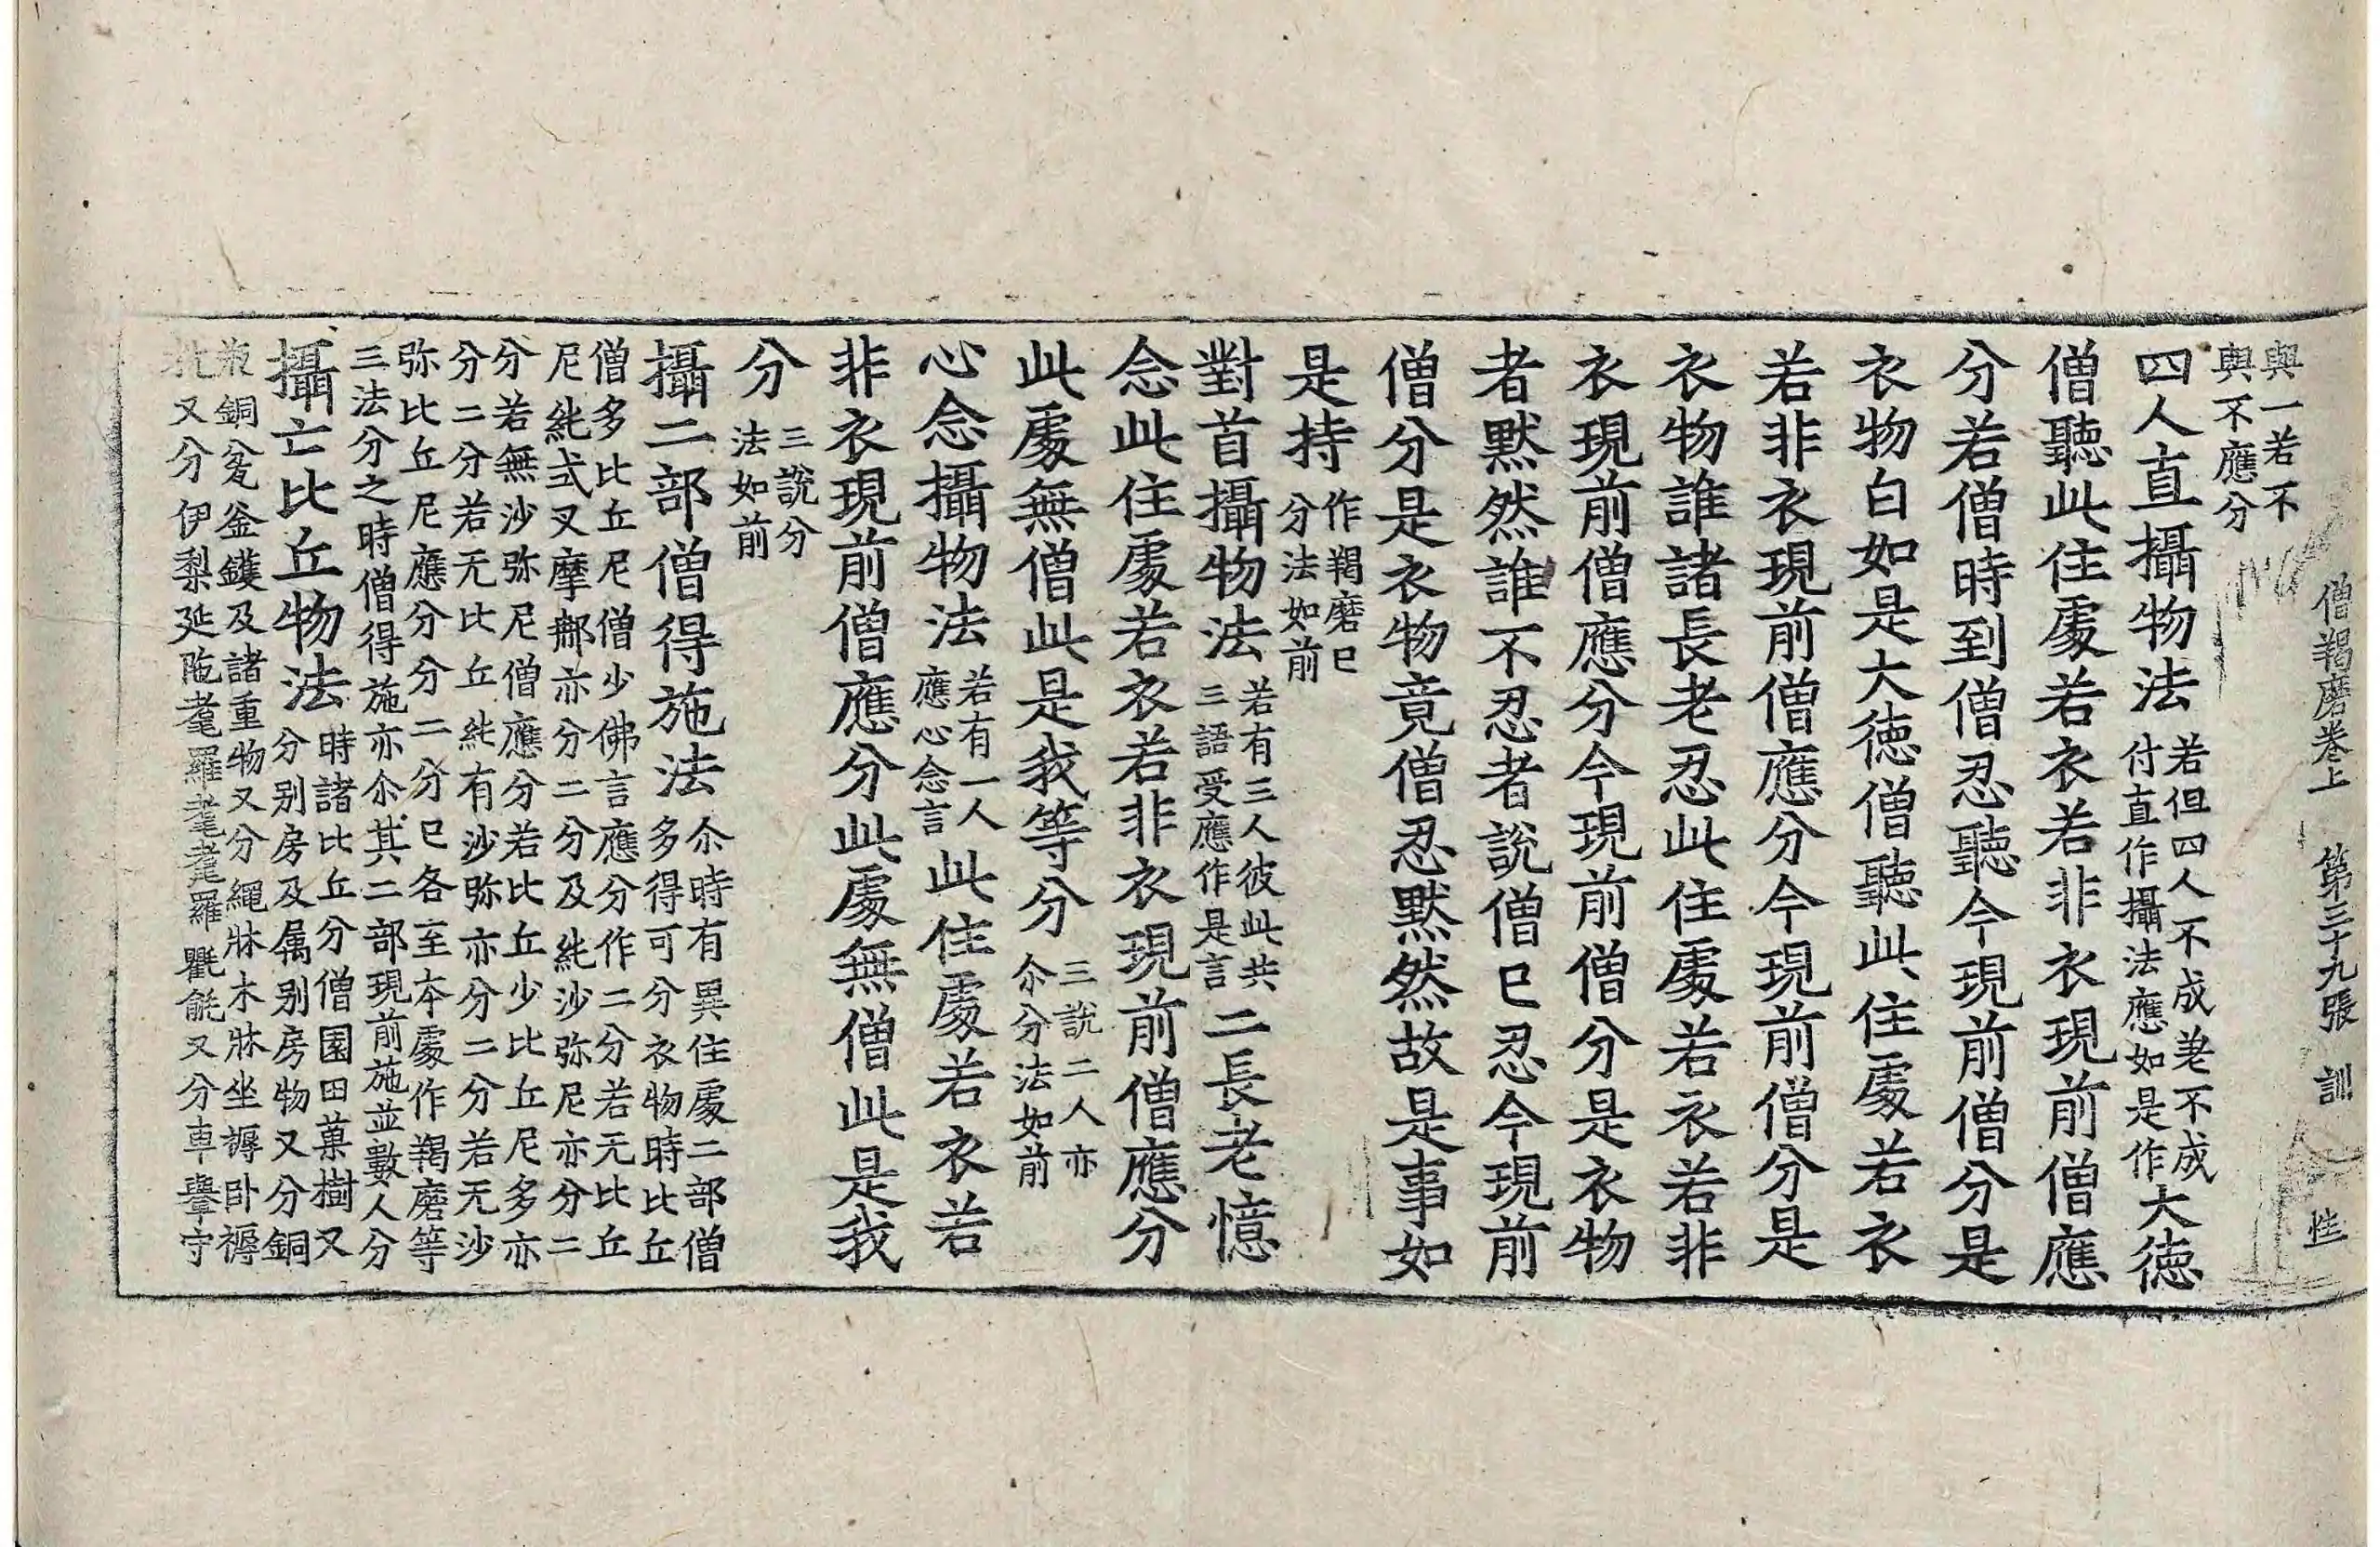 僧羯磨卷上　第三十九張　訓　性
與一若不
與不應分
四人直攝物法
若但四人不成差不成
付直作攝法應如是作
大德
僧聽此住處若衣若非衣現前僧應
分若僧時到僧忍聽今現前僧分是
衣物白如是大德僧聽此住處若衣
若非衣現前僧應分今現前僧分是
衣物誰諸長老忍此住處若衣若非
衣現前僧應分今現前僧分是衣物
者默然誰不忍者說僧已忍今現前
僧分是衣物竟僧忍默然故是事如
是持
作羯磨已
分法如前
對首攝物法
若有三人彼此共
三語受應作是言
二長老憶
念此住處若衣若非衣現前僧應分
此處無僧此是我等分
三說二人亦
尒分法如前
心念攝物法
若有一人
應心念言
此住處若衣若
非衣現前僧應分此處無僧此是我
分
三說分
法如前
攝二部僧得施法
尒時有異住處二部僧
多得可分衣物時比丘
僧多比丘尼僧少佛言應分作二分若无比丘
尼純式叉摩那亦分二分及純沙弥尼亦分二
分若無沙弥尼僧應分若比丘少比丘尼多亦
分二分若无比丘純有沙弥亦分二分若无沙
弥比丘尼應分分二分已各至本處作羯磨等
三法分之時僧得施亦尒其二部現前施並數人分
攝亡比丘物法
時諸比丘分僧園田菓樹又
分別房及属別房物又分銅
瓶銅瓫釜鑊及諸重物又分繩牀木牀坐褥卧褥
又分伊梨延陁耄羅耄耄羅氍㲣又分車轝守